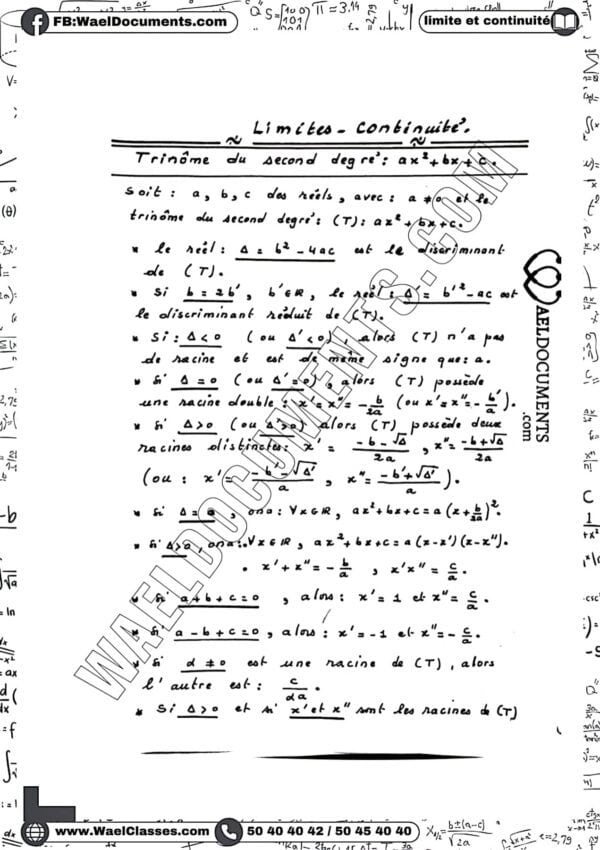 FB:WaelDocuments.com
limite et continuité
Limites - Continuité.
Trinôme du second degré: ax² + bx + c.
Soit : a, b, c des réels, avec : a ≠ 0 et le
trinôme du second degré: (T): ax² + bx + c.
* Le réel: Δ = b² - 4ac est le discriminant
de (T).
* Si b = 2b', b'∈ℝ, le réel: Δ' = b'² - ac est
le discriminant réduit de (T).
* Si: Δ < 0 (ou Δ' < 0), alors (T) n'a pas
de racine et est de même signe que: a.
* Si Δ = 0 (ou Δ' = 0), alors (T) possède
une racine double: x' = x'' = -b/2a (ou x' = x'' = -b'/a).
* Si Δ > 0 (ou Δ' > 0) alors (T) possède deux
racines distinctes: x' = (-b - √Δ)/2a, x'' = (-b + √Δ)/2a
(ou : x' = (-b' - √Δ')/a, x'' = (-b' + √Δ')/a).
* Si Δ = 0, ona: ∀x∈ℝ, ax² + bx + c = a(x + b/2a)².
* Si Δ > 0, ona: ∀x∈ℝ, ax² + bx + c = a(x - x')(x - x'').
• x' + x'' = -b/a, x'x'' = c/a.
* Si a + b + c = 0, alors: x' = 1 et x'' = c/a.
* Si a - b + c = 0, alors: x' = -1 et x'' = -c/a.
* Si α ≠ 0 est une racine de (T), alors
l'autre est: c/αa.
* Si Δ > 0 et si x' et x'' sont les racines de (T)
WAELDOCUMENTS.COM
WAELDOCUMENTS
.com
www.WaelClasses.com
50 40 40 42 / 50 45 40 40